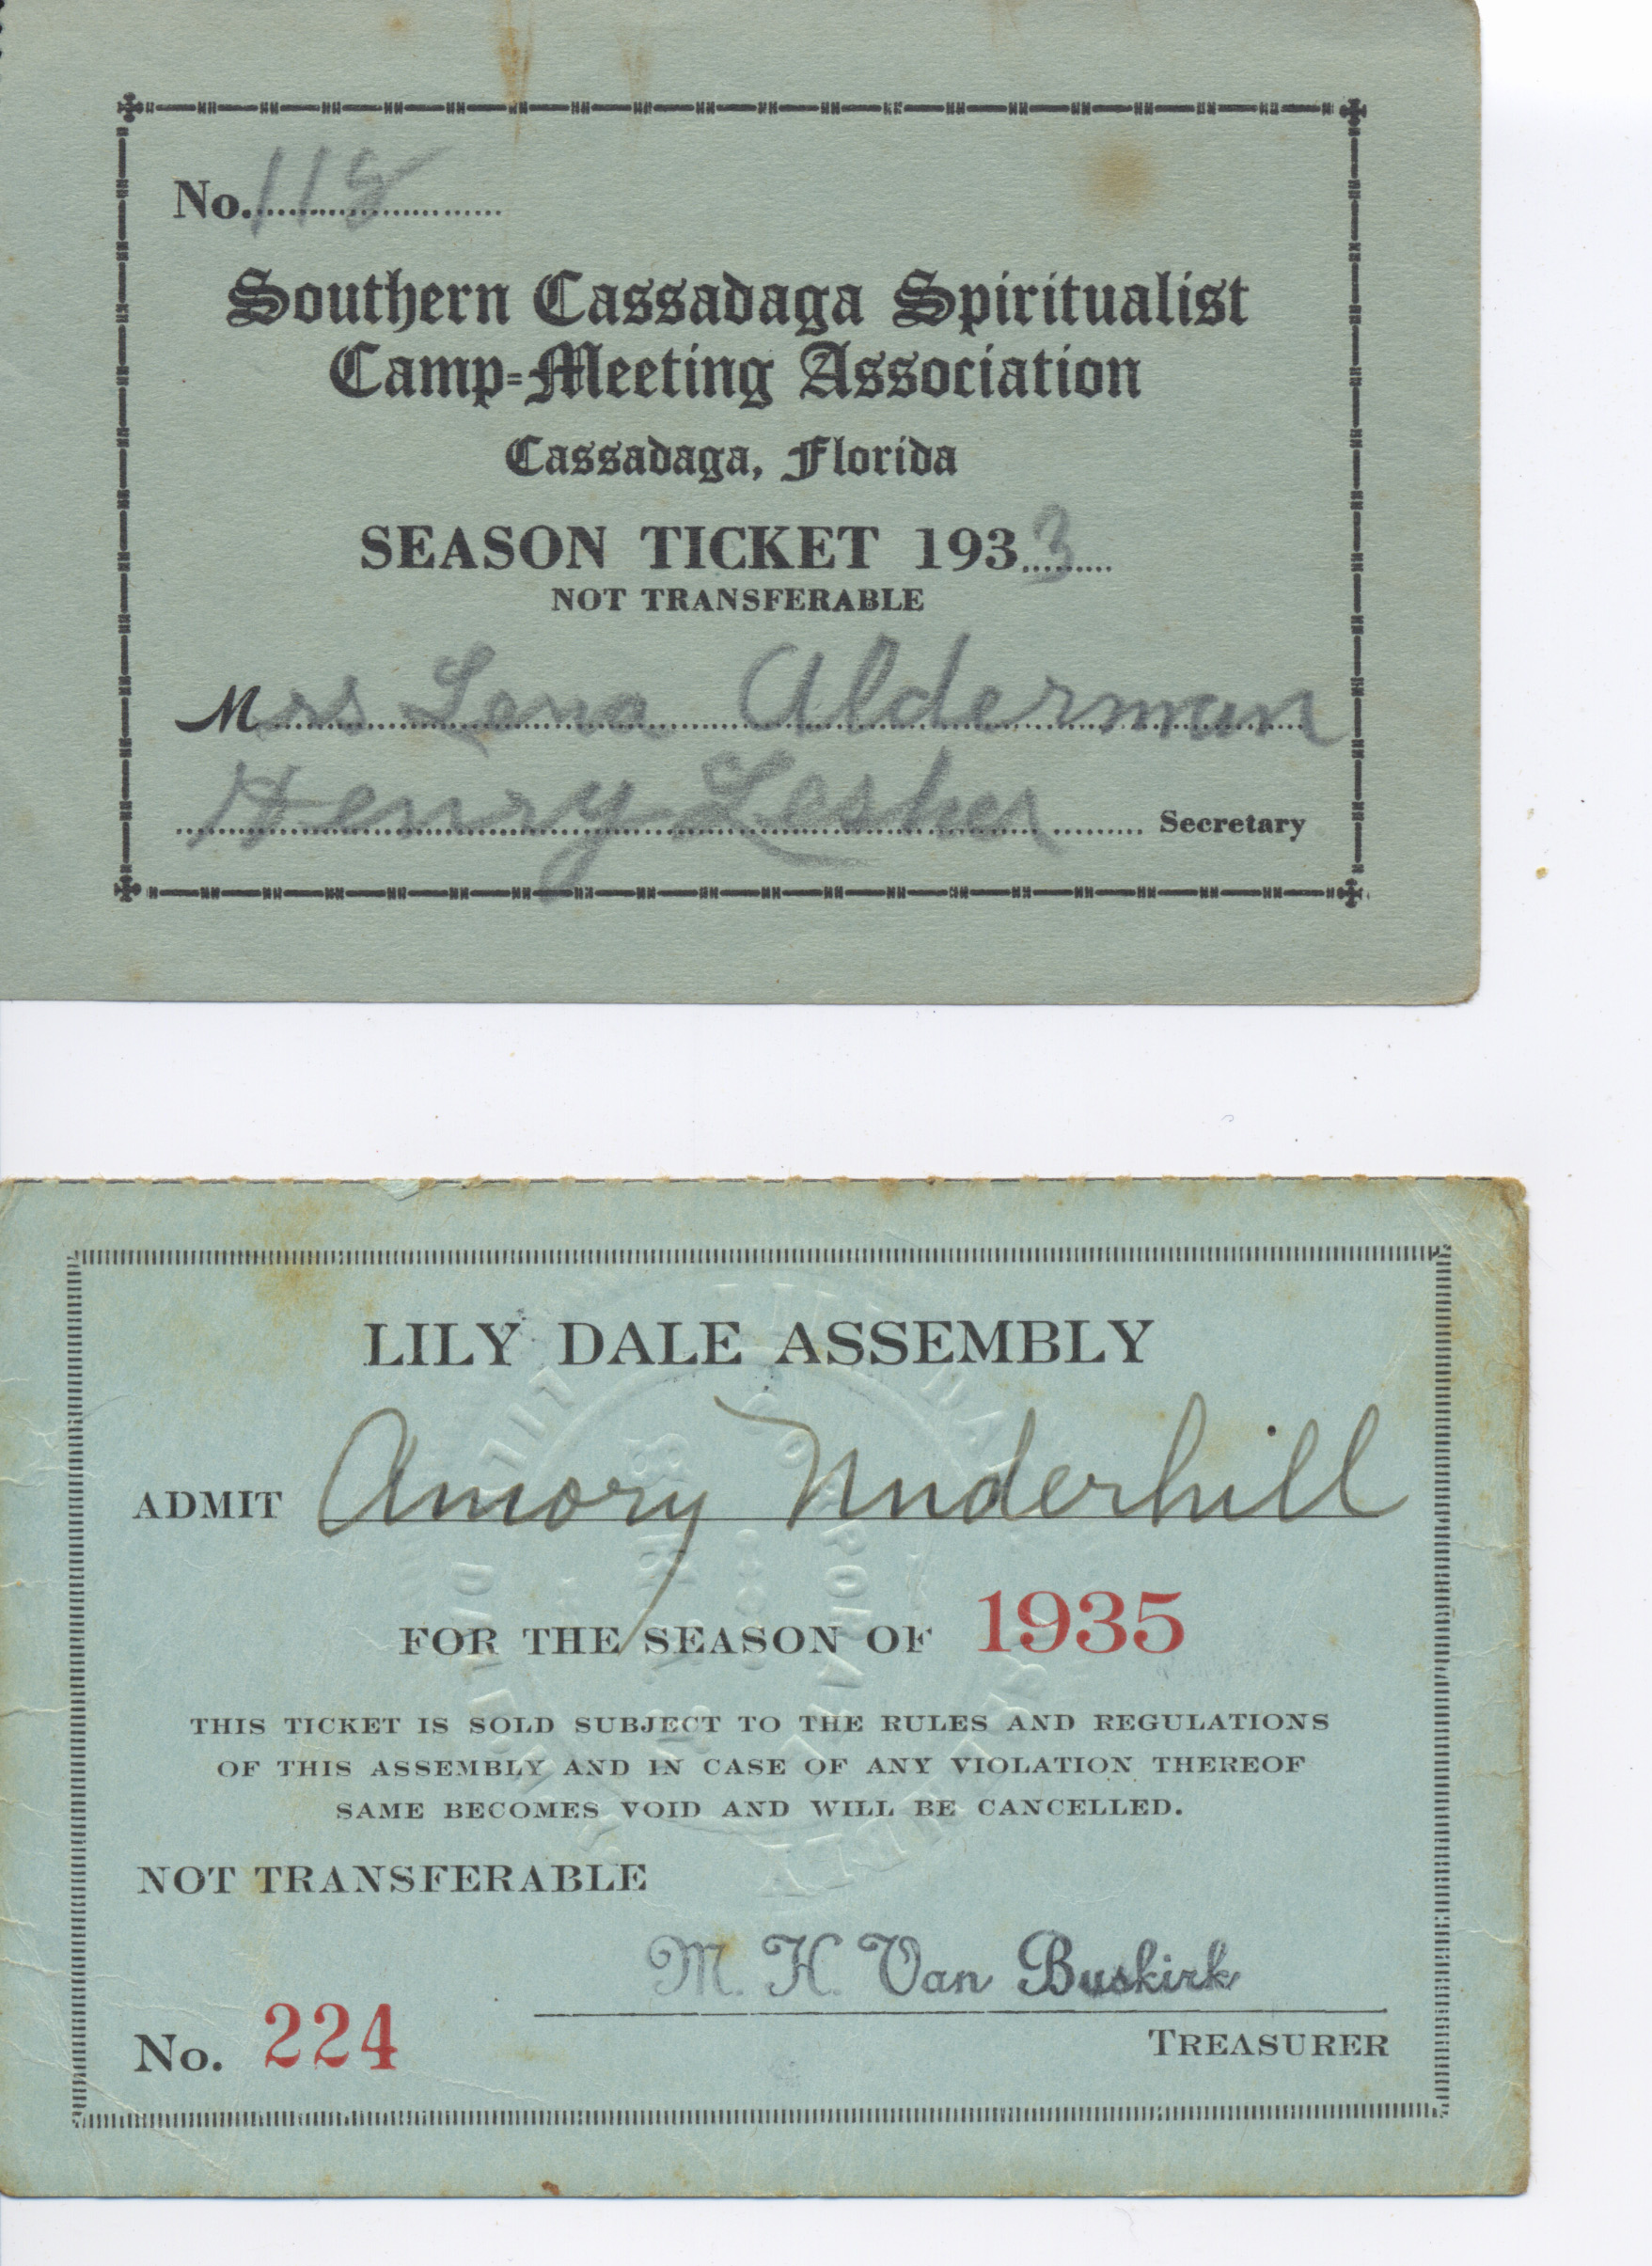 No. 118
Southern Cassadaga Spiritualist
Camp-Meeting Association
Cassadaga, Florida
SEASON TICKET 1933
NOT TRANSFERABLE
Mrs Lena Alderman
Henry Lesher Secretary
LILY DALE ASSEMBLY
ADMIT Amory Underhill
FOR THE SEASON OF 1935
THIS TICKET IS SOLD SUBJECT TO THE RULES AND REGULATIONS
OF THIS ASSEMBLY AND IN CASE OF ANY VIOLATION THEREOF
SAME BECOMES VOID AND WILL BE CANCELLED.
NOT TRANSFERABLE
M. H. Van Buskirk
No. 224
TREASURER